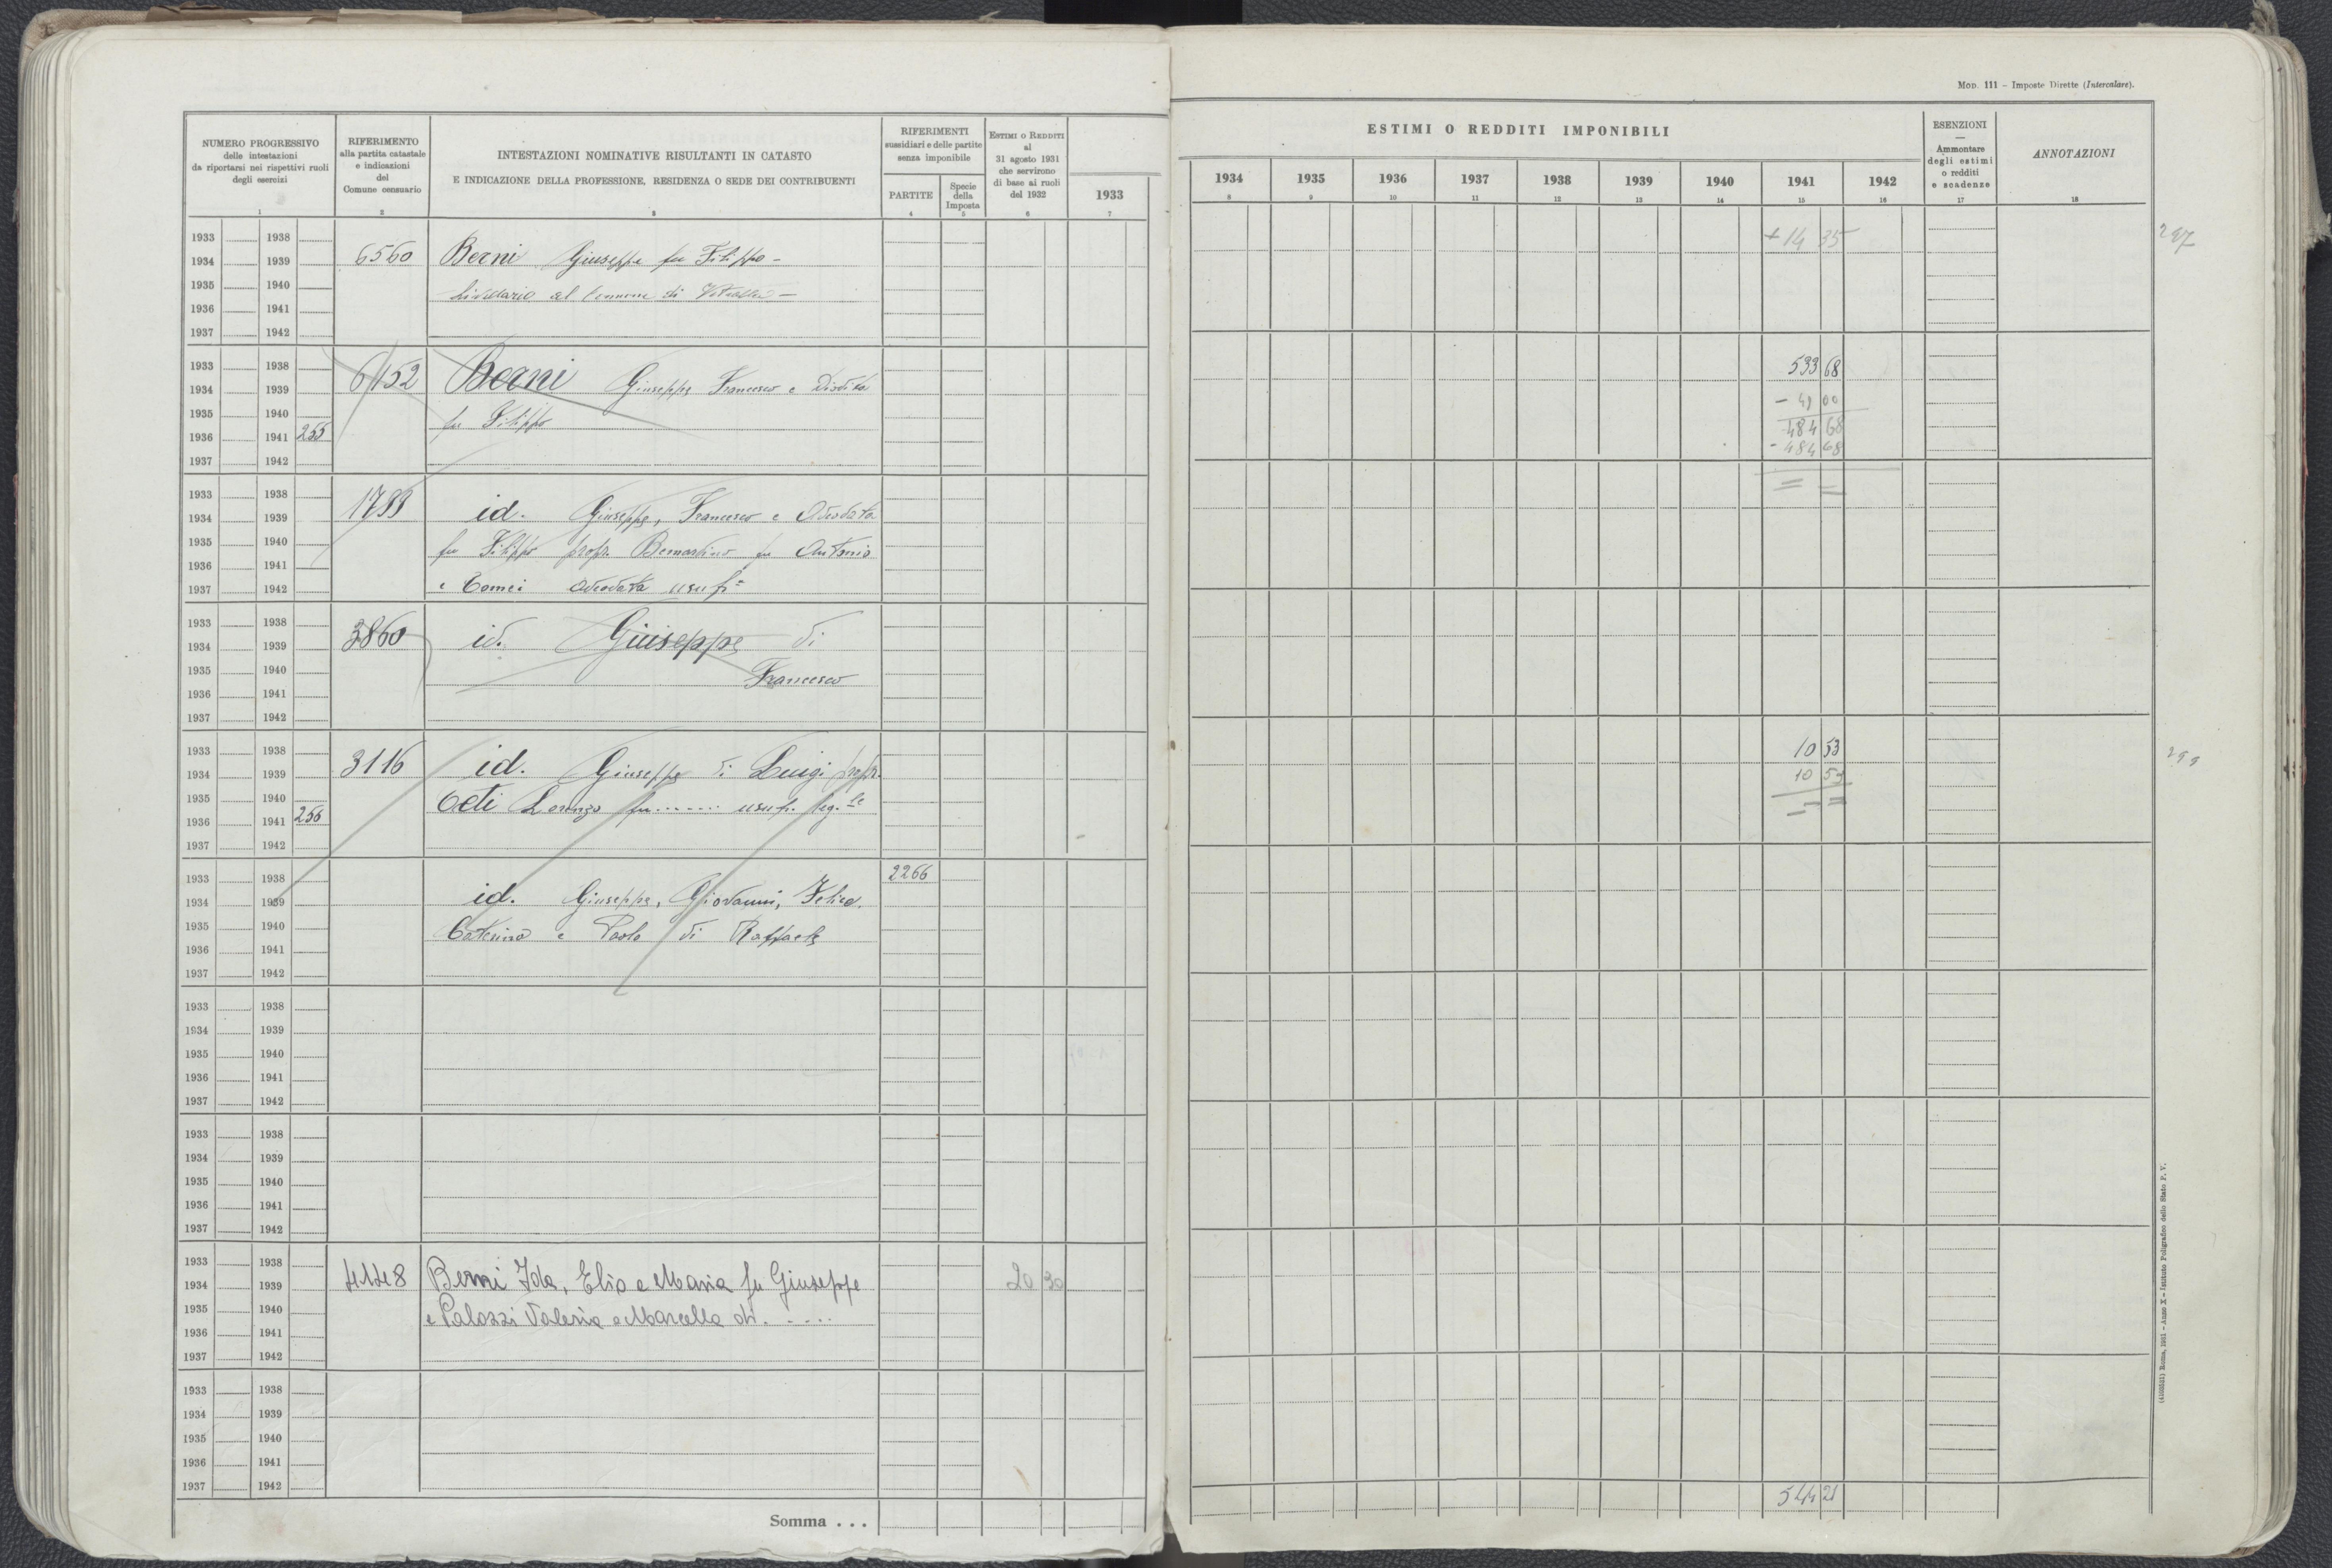 MOD. 111 - Imposte Dirette (Intercalare).
NUMERO PROGRESSIVO
delle intestazioni
da riportarsi nei rispettivi ruoli
degli esercizi
1
RIFERIMENTO
alla partita catastale
e indicazioni
del
Comune censuario
2
INTESTAZIONI NOMINATIVE RISULTANTI IN CATASTO
E INDICAZIONE DELLA PROFESSIONE, RESIDENZA O SEDE DEI CONTRIBUENTI
3
RIFERIMENTI
sussidiari e delle partite
senza imponibile
PARTITE
4
Specie
della
Imposta
5
ESTIMI O REDDITI
al
31 agosto 1931
che servirono
di base ai ruoli
del 1932
6
1933
7
ESTIMI O REDDITI IMPONIBILI
1934 1935 1936 1937 1938 1939 1940 1941 1942
8 9 10 11 12 13 14 15 16
ESENZIONI
—
Ammontare
degli estimi
o redditi
e scadenze
17
ANNOTAZIONI
18
1933 1938 + 14 35 297
1934 1939 6560 Berni Giuseppe fu Filippo -
1935 1940 livellario al Comune di Vetralla -
1936 1941
1937 1942
1933 1938 533 68
1934 1939 6152 Berni Giuseppe Francesco e
1935 1940 fu Filippo - 49 00
1936 1941 255 484 68
1937 1942 - 484 68
1933 1938 = =
1934 1939 1799 id. Giuseppe, Francesco e Adeodata
1935 1940 fu Filippo propr. Bernardino fu Antonio
1936 1941
1937 1942 e Comei Adeodata usufr
1933 1938
1934 1939 3860 id. Giuseppe di
1935 1940 Francesco
1936 1941
1937 1942
1933 1938 10 53
1934 1939 3116 id. Giuseppe di Luigi propr. 10 53
1935 1940 Ceti Lorenzo fu ....... usufr. leg.le
1936 1941 256 = =
1937 1942
1933 1938 2266
1934 1939 id. Giuseppe, Giovanni, Felice.
1935 1940 Caterina e Paolo di Raffaele
1936 1941
1937 1942
1933 1938
1934 1939
1935 1940
1936 1941
1937 1942
1933 1938
1934 1939
1935 1940
1936 1941
1937 1942
1933 1938
1934 1939 4148 Berni Ida, Elio e Maria fu Giuseppe 20 30
1935 1940 e Palozzi Valeria e Marcella di . . . . .
1936 1941
1937 1942
1933 1938
1934 1939
1935 1940
1936 1941
1937 1942
544 21
Somma . . .
Roma, 1931 - Anno X - Istituto Poligrafico dello Stato P. V.